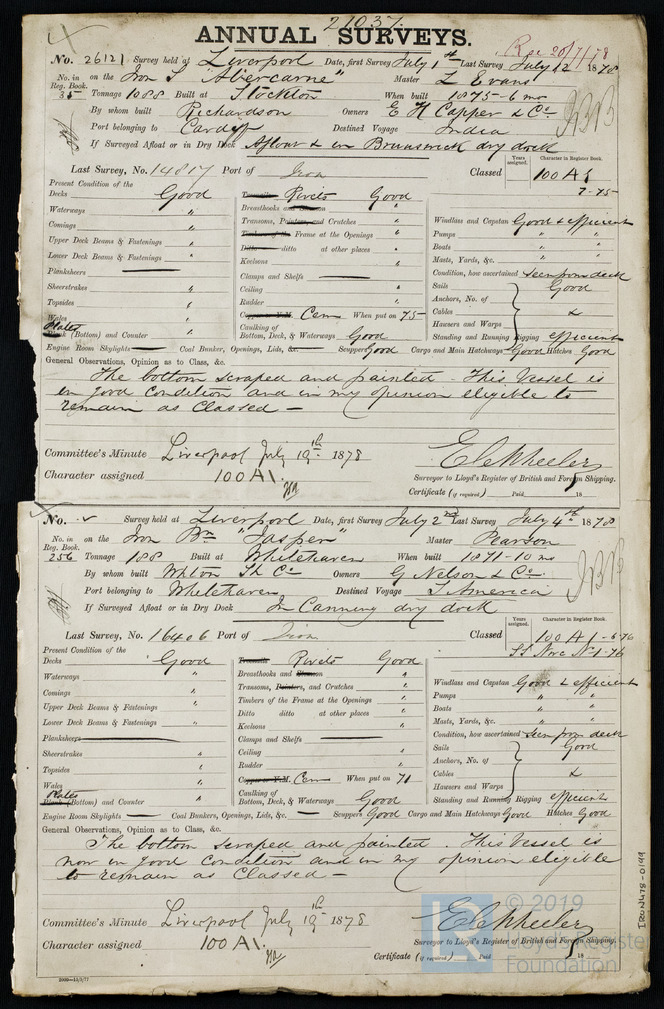 21037.
ANNUAL SURVEYS.
Rec 20/7/78
No. 26121 Survey held at Liverpool Date, first Survey July 1st Last Survey July 12 1878
No. in Reg. Book. 35 on the Iron S "Abercarne" Master L Evans
Tonnage 1088 Built at Stockton When built 1875-6 mo
By whom built Richardson Owners E H Capper & Co
Port belonging to Cardiff Destined Voyage India
If Surveyed Afloat or in Dry Dock Afloat & in Brunswick dry dock
Last Survey, No. 14817 Port of Iron Classed Years assigned. Character in Register Book. 100 A1
7-75
Present Condition of the
Decks Good Treenails Rivets Good
Waterways " Breasthooks and "
Comings " Transoms, Pointers, and Crutches " Windlass and Capstan Good & efficient
Upper Deck Beams & Fastenings " Timbers of the Frame at the Openings " Pumps " "
Lower Deck Beams & Fastenings " Ditto ditto at other places " Boats " "
Planksheers Keelsons " Masts, Yards, &c. " "
Sheerstrakes " Clamps and Shelfs Condition, how ascertained Seen from deck
Topsides " Ceiling " Sails Good
Wales " Rudder " Anchors, No. of
Plates Plank (Bottom) and Counter " Copper or Y.M. Cem When put on 75 Cables &
Caulking of Bottom, Deck, & Waterways Good Hawsers and Warps
Standing and Running Rigging efficient
Engine Room Skylights Coal Bunker, Openings, Lids, &c. Scuppers Good Cargo and Main Hatchways Good Hatches Good
General Observations, Opinion as to Class, &c.
The bottom scraped and painted. This Vessel is
in good condition and in my opinion eligible to
remain as Classed —
Committee's Minute Liverpool July 19th 1878
Character assigned 100 A1.
E C Wheeler
Surveyor to Lloyd's Register of British and Foreign Shipping.
Certificate (if required) Paid 18
No. Survey held at Liverpool Date, first Survey July 2nd Last Survey July 4th 1878
No. in Reg. Book. 256 on the Iron Bn "Jasper" Master Pearson
Tonnage 188 Built at Whitehaven When built 1871-10 mo
By whom built Whton Sh Co Owners G Nelson & Co
Port belonging to Whitehaven Destined Voyage S. America
If Surveyed Afloat or in Dry Dock In Canning dry dock
Last Survey, No. 16406 Port of Iron Classed Years assigned. Character in Register Book. 100 A1 -6-76
SS No 1-76
Present Condition of the
Decks Good Treenails Rivets Good
Waterways " Breasthooks and "
Comings " Transoms, Pointers, and Crutches " Windlass and Capstan Good & efficient
Upper Deck Beams & Fastenings " Timbers of the Frame at the Openings " Pumps " "
Lower Deck Beams & Fastenings " Ditto ditto at other places " Boats " "
Planksheers Keelsons " Masts, Yards, &c. " "
Sheerstrakes " Clamps and Shelfs Condition, how ascertained Seen from deck
Topsides " Ceiling " Sails Good
Wales " Rudder " Anchors, No. of
Plates Plank (Bottom) and Counter " Copper or Y.M. Cem When put on 71 Cables &
Caulking of Bottom, Deck, & Waterways Good Hawsers and Warps
Standing and Running Rigging efficient
Engine Room Skylights Coal Bunkers, Openings, Lids, &c. Scuppers Good Cargo and Main Hatchways Good Hatches Good
General Observations, Opinion as to Class, &c.
The bottom scraped and painted. This Vessel is
now in good condition and in my opinion eligible
to remain as Classed —
Committee's Minute Liverpool July 19th 1878
Character assigned 100 A1.
E C Wheeler
Surveyor to Lloyd's Register of British and Foreign Shipping.
Certificate (if required) Paid 18
IRON478-0199
© 2019
Lloyd's Register
Foundation